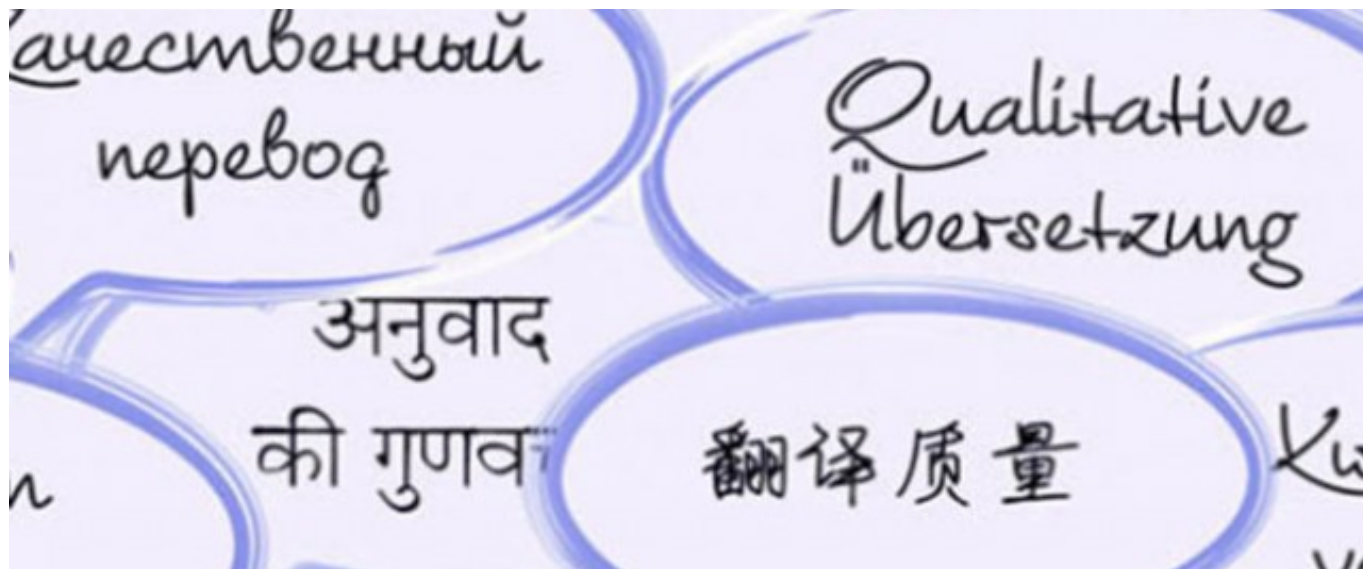 ачественный
перевод
Qualitative
Übersetzung
अनुवाद
की गुणव
翻译质量